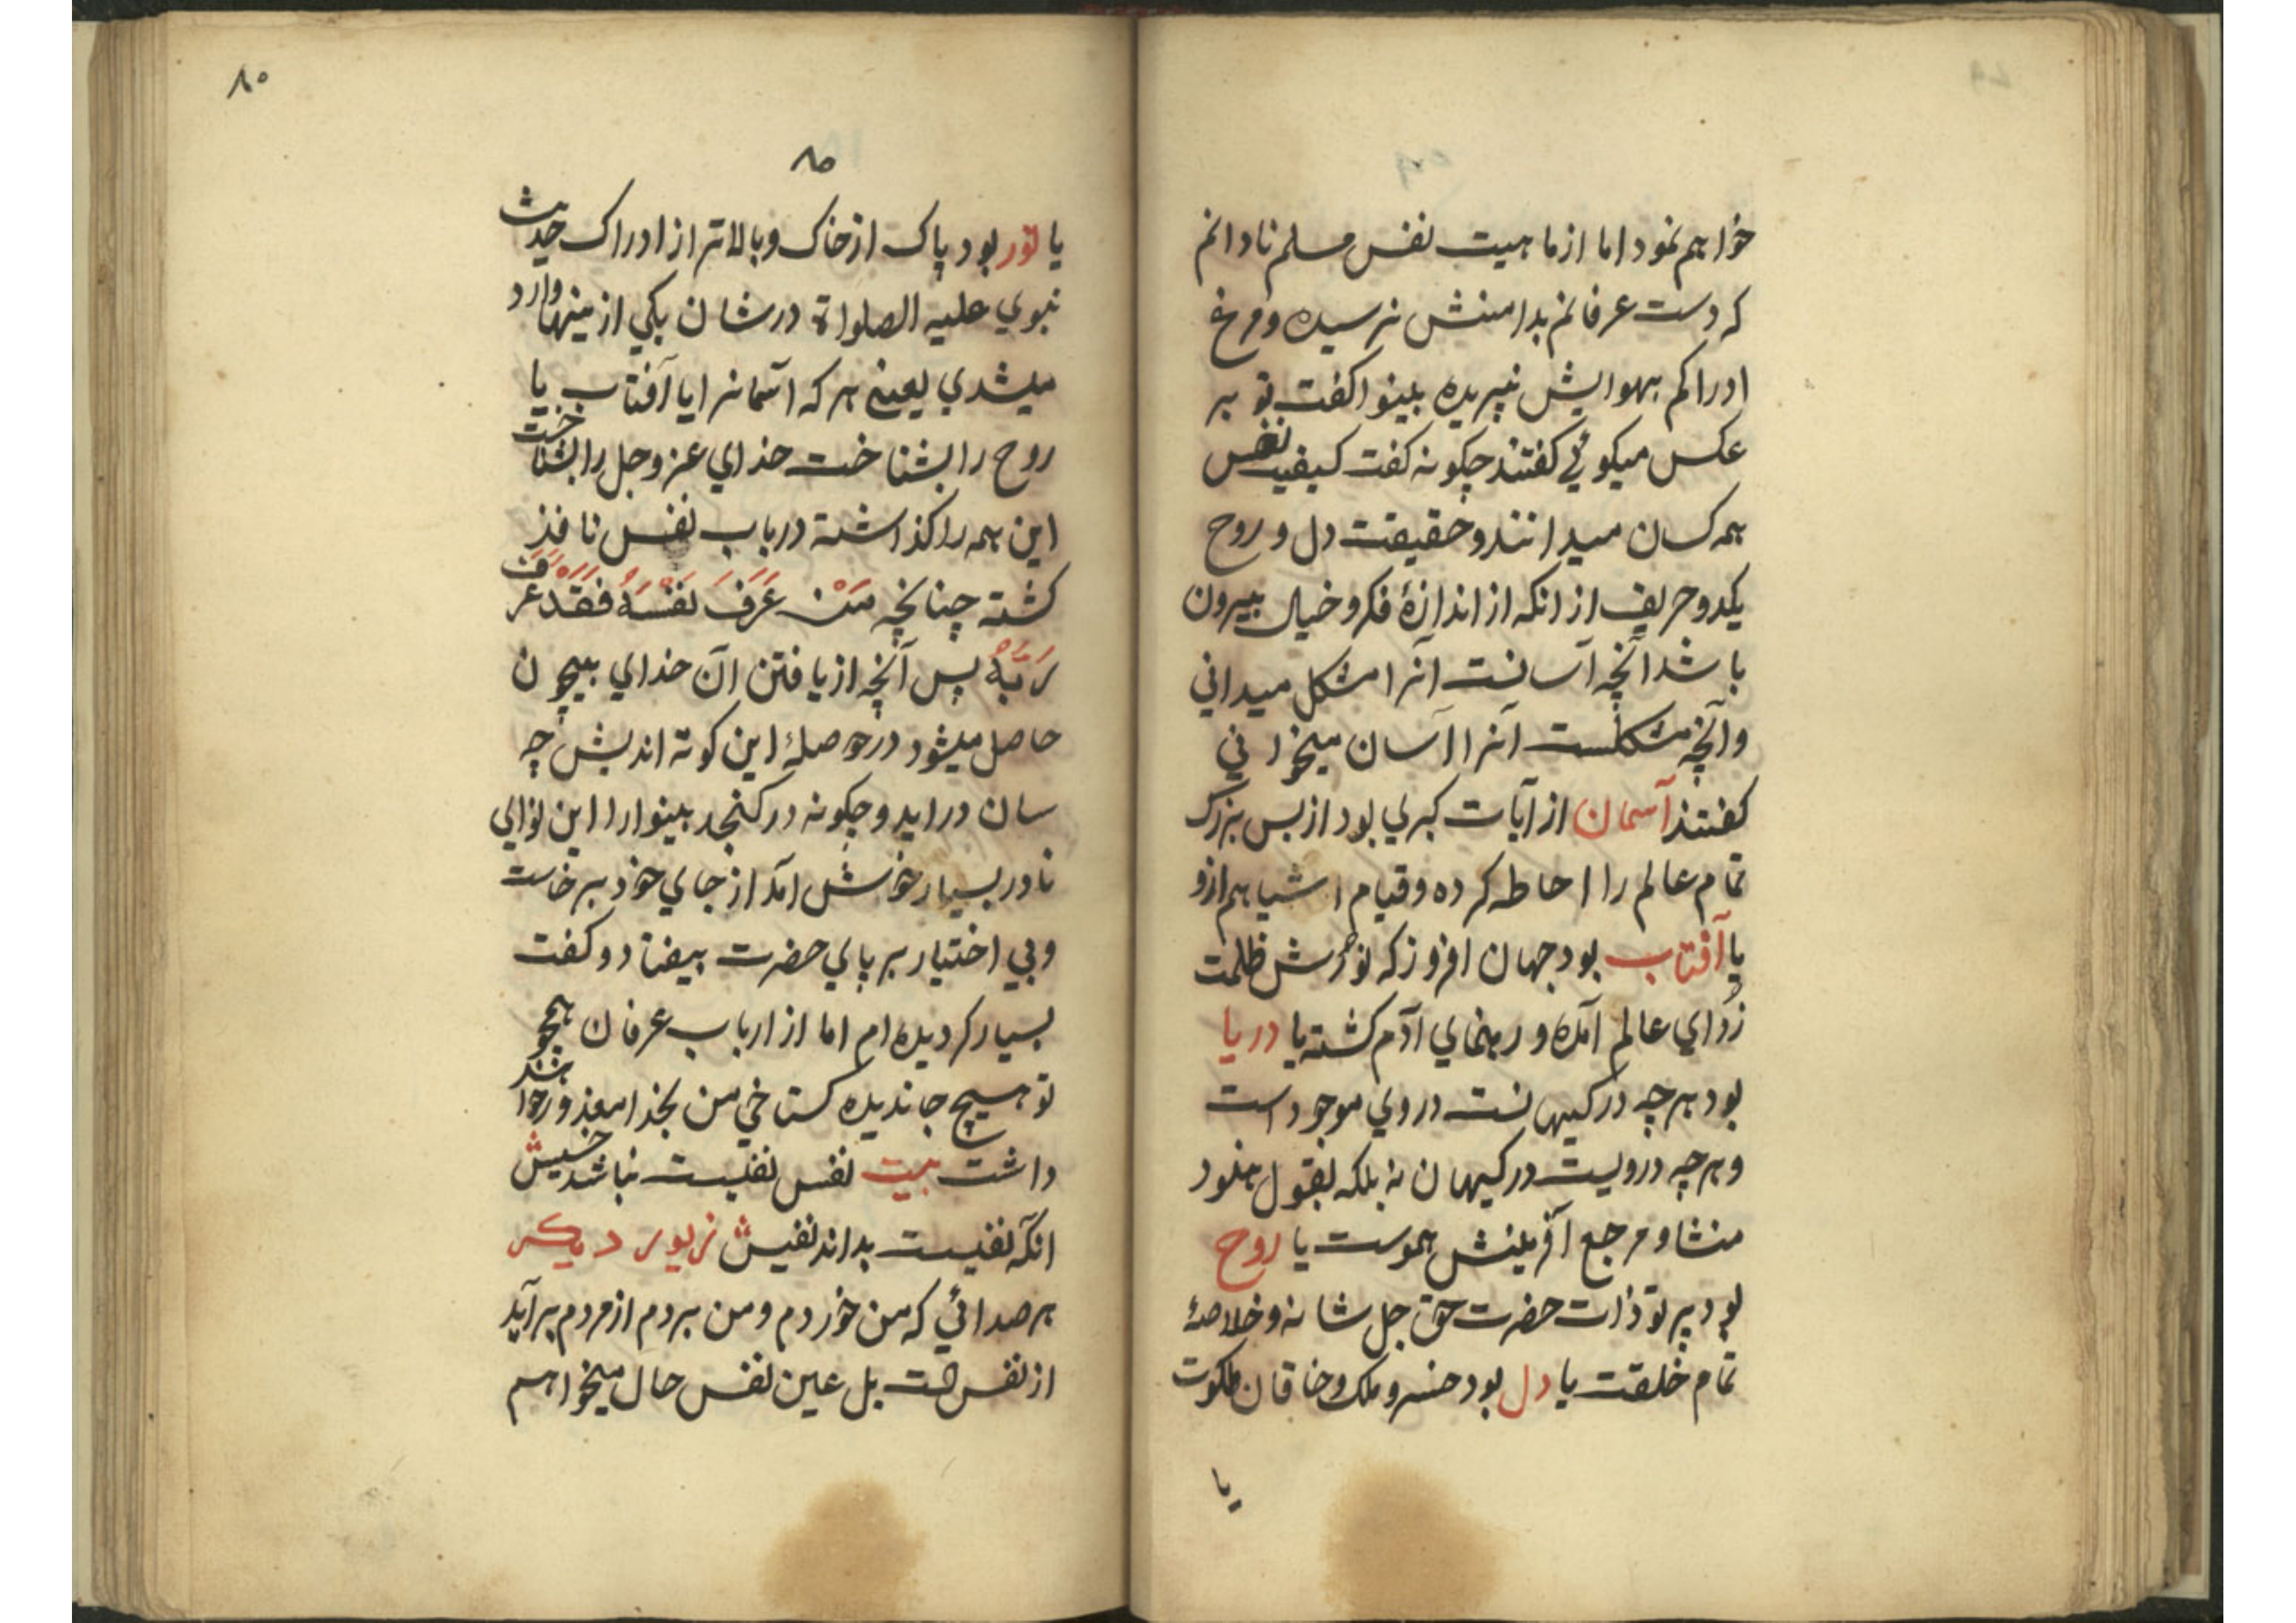 خواهم نمود اما از ماهیت نفس مسلم نادانم
که دست عرفانم بدامنش نرسیده و مرغ
ادراکم بهوایش نپریده بینوا کفت تو بر
عکس میکوئي کفتند چکونه کفت کیفیت نفس
همه کسان میدانند و حقیقت دل و روح
یکدو حریف از انکه از اندازهٔ فکر و خیال بیرون
باشد آنچه آسانست آنرا مشکل میدانی
و آنچه مشکلست آنرا آسان میخوانی
کفتند آسمان از آیات کبری بود از بس بزرک
تمام عالم را احاطه کرده و قیام اشیا هم ازو
یا آفتاب بود جهان افروز که نورش ظلمت
زدای عالم آمده و رهنمای آدم کشته یا دریا
بود هرچه در کیهانست در وي موجود است
و هرچه درویست در کیهان نه بلکه بقول هنود
منشا و مرجع آفرینش هموست یا روح
بود پرتو ذات حضرت حق جل شانه و خلاصهٔ
تمام خلقت یا دل بود خسرو ملک و خاقان ملکوت
یا
۸۰
۸۰
یا نور بود پاک از خاک و بالاتر از ادراک حدیث
نبوي علیه الصلواة در شان یکي از مینها وارد
میشدي یعنی هر که آسمانرا یا آفتاب یا
روح را بشناخت خداي عز و جل را بشناخت
این همه را کذاشته در باب نفس نافذ
کشته چنانچه مَنْ عَرَفَ نَفْسَهُ فَقَدْ عَرَفَ
رَبَّهُ پس آنچه از یافتن آن خداي بیچون
حاصل میشود در حوصلهٔ این کوته اندیش چه
سان دراید و چکونه در کنجد بینوا را این نوالي
نادر بسیار خوش آمد از جاي خود برخاست
و بي اختیار بر پاي حضرت بیفتاد و کفت
بسیار کردیده ام اما از ارباب عرفان همچو
تو هیچ جا ندیده کستاخي من بخدا معذور خواهند
داشت بیت نفس نفیست نباشد خسیش
آنکه نفیست بداند نفیش زیور دیکر
هر صدائي که من خوردم و من بردم از مردم برآید
از نفس است بل عین نفس حال میخواهم